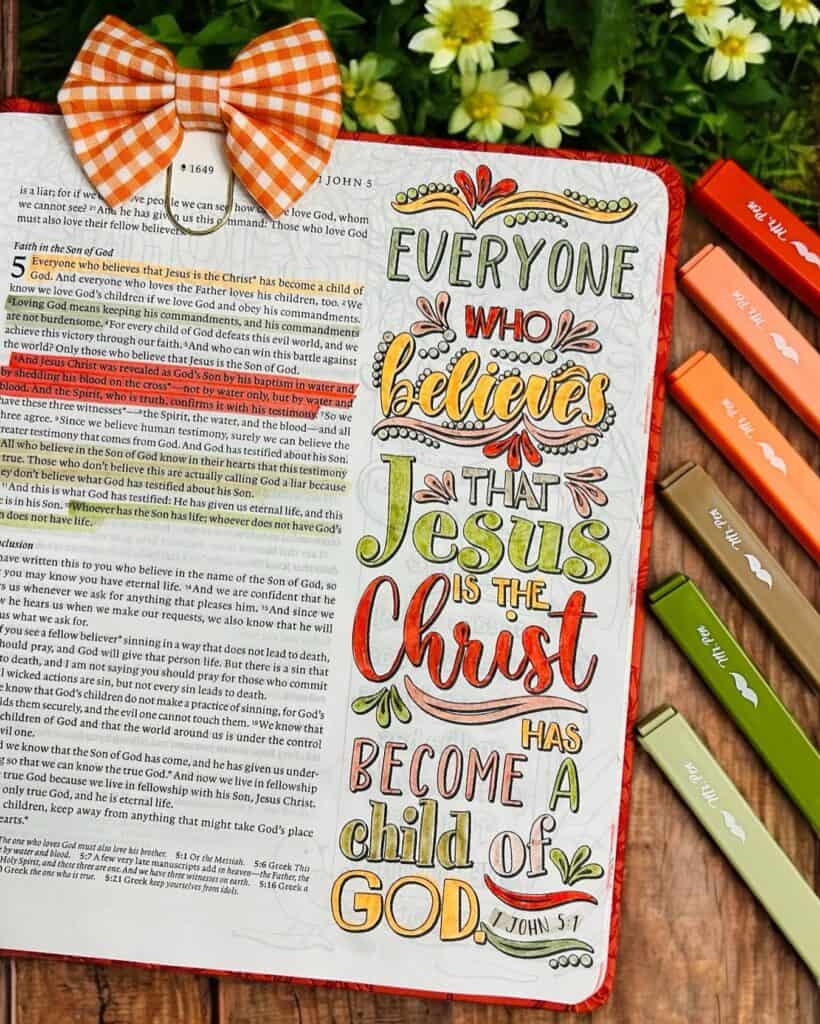 1649
1 JOHN 5
is a liar; for if we ve people we can see, how c e love God, whom
we cannot see? 21 And he has given us this command: Those who love God
must also love their fellow believers.
Faith in the Son of God
5 Everyone who believes that Jesus is the Christ* has become a child of
God. And everyone who loves the Father loves his children, too. 2 We
know we love God's children if we love God and obey his commandments.
3 Loving God means keeping his commandments, and his commandments
are not burdensome. 4 For every child of God defeats this evil world, and we
achieve this victory through our faith. 5 And who can win this battle against
the world? Only those who believe that Jesus is the Son of God.
6 And Jesus Christ was revealed as God's Son by his baptism in water and
by shedding his blood on the cross*—not by water only, but by water and
blood. And the Spirit, who is truth, confirms it with his testimony. 7 So we
have these three witnesses*—8 the Spirit, the water, and the blood—and all
three agree. 9 Since we believe human testimony, surely we can believe the
greater testimony that comes from God. And God has testified about his Son.
All who believe in the Son of God know in their hearts that this testimony
true. Those who don't believe this are actually calling God a liar because
ey don't believe what God has testified about his Son.
11 And this is what God has testified: He has given us eternal life, and this
e is in his Son. 12 Whoever has the Son has life; whoever does not have God's
n does not have life.
nclusion
have written this to you who believe in the name of the Son of God, so
t you may know you have eternal life. 14 And we are confident that he
rs us whenever we ask for anything that pleases him. 15 And since we
w he hears us when we make our requests, we also know that he will
us what we ask for.
f you see a fellow believer* sinning in a way that does not lead to death,
hould pray, and God will give that person life. But there is a sin that
to death, and I am not saying you should pray for those who commit
l wicked actions are sin, but not every sin leads to death.
e know that God's children do not make a practice of sinning, for God's
lds them securely, and the evil one cannot touch them. 19 We know that
children of God and that the world around us is under the control
vil one.
d we know that the Son of God has come, and he has given us under-
g so that we can know the true God.* And now we live in fellowship
e true God because we live in fellowship with his Son, Jesus Christ.
only true God, and he is eternal life.
children, keep away from anything that might take God's place
earts.*
The one who loves God must also love his brother. 5:1 Or the Messiah. 5:6 Greek This
by water and blood. 5:7 A few very late manuscripts add in heaven—the Father, the
Holy Spirit, and these three are one. And we have three witnesses on earth. 5:16 Greek a
Greek the one who is true. 5:21 Greek keep yourselves from idols.
EVERYONE
WHO
believes
THAT
Jesus
IS THE
Christ
HAS
BECOME A
child of
GOD.
1 JOHN 5:1
Mr. Pen
Mr. Pen
Mr. Pen
Mr. Pen
Mr. Pen
Mr. Pen